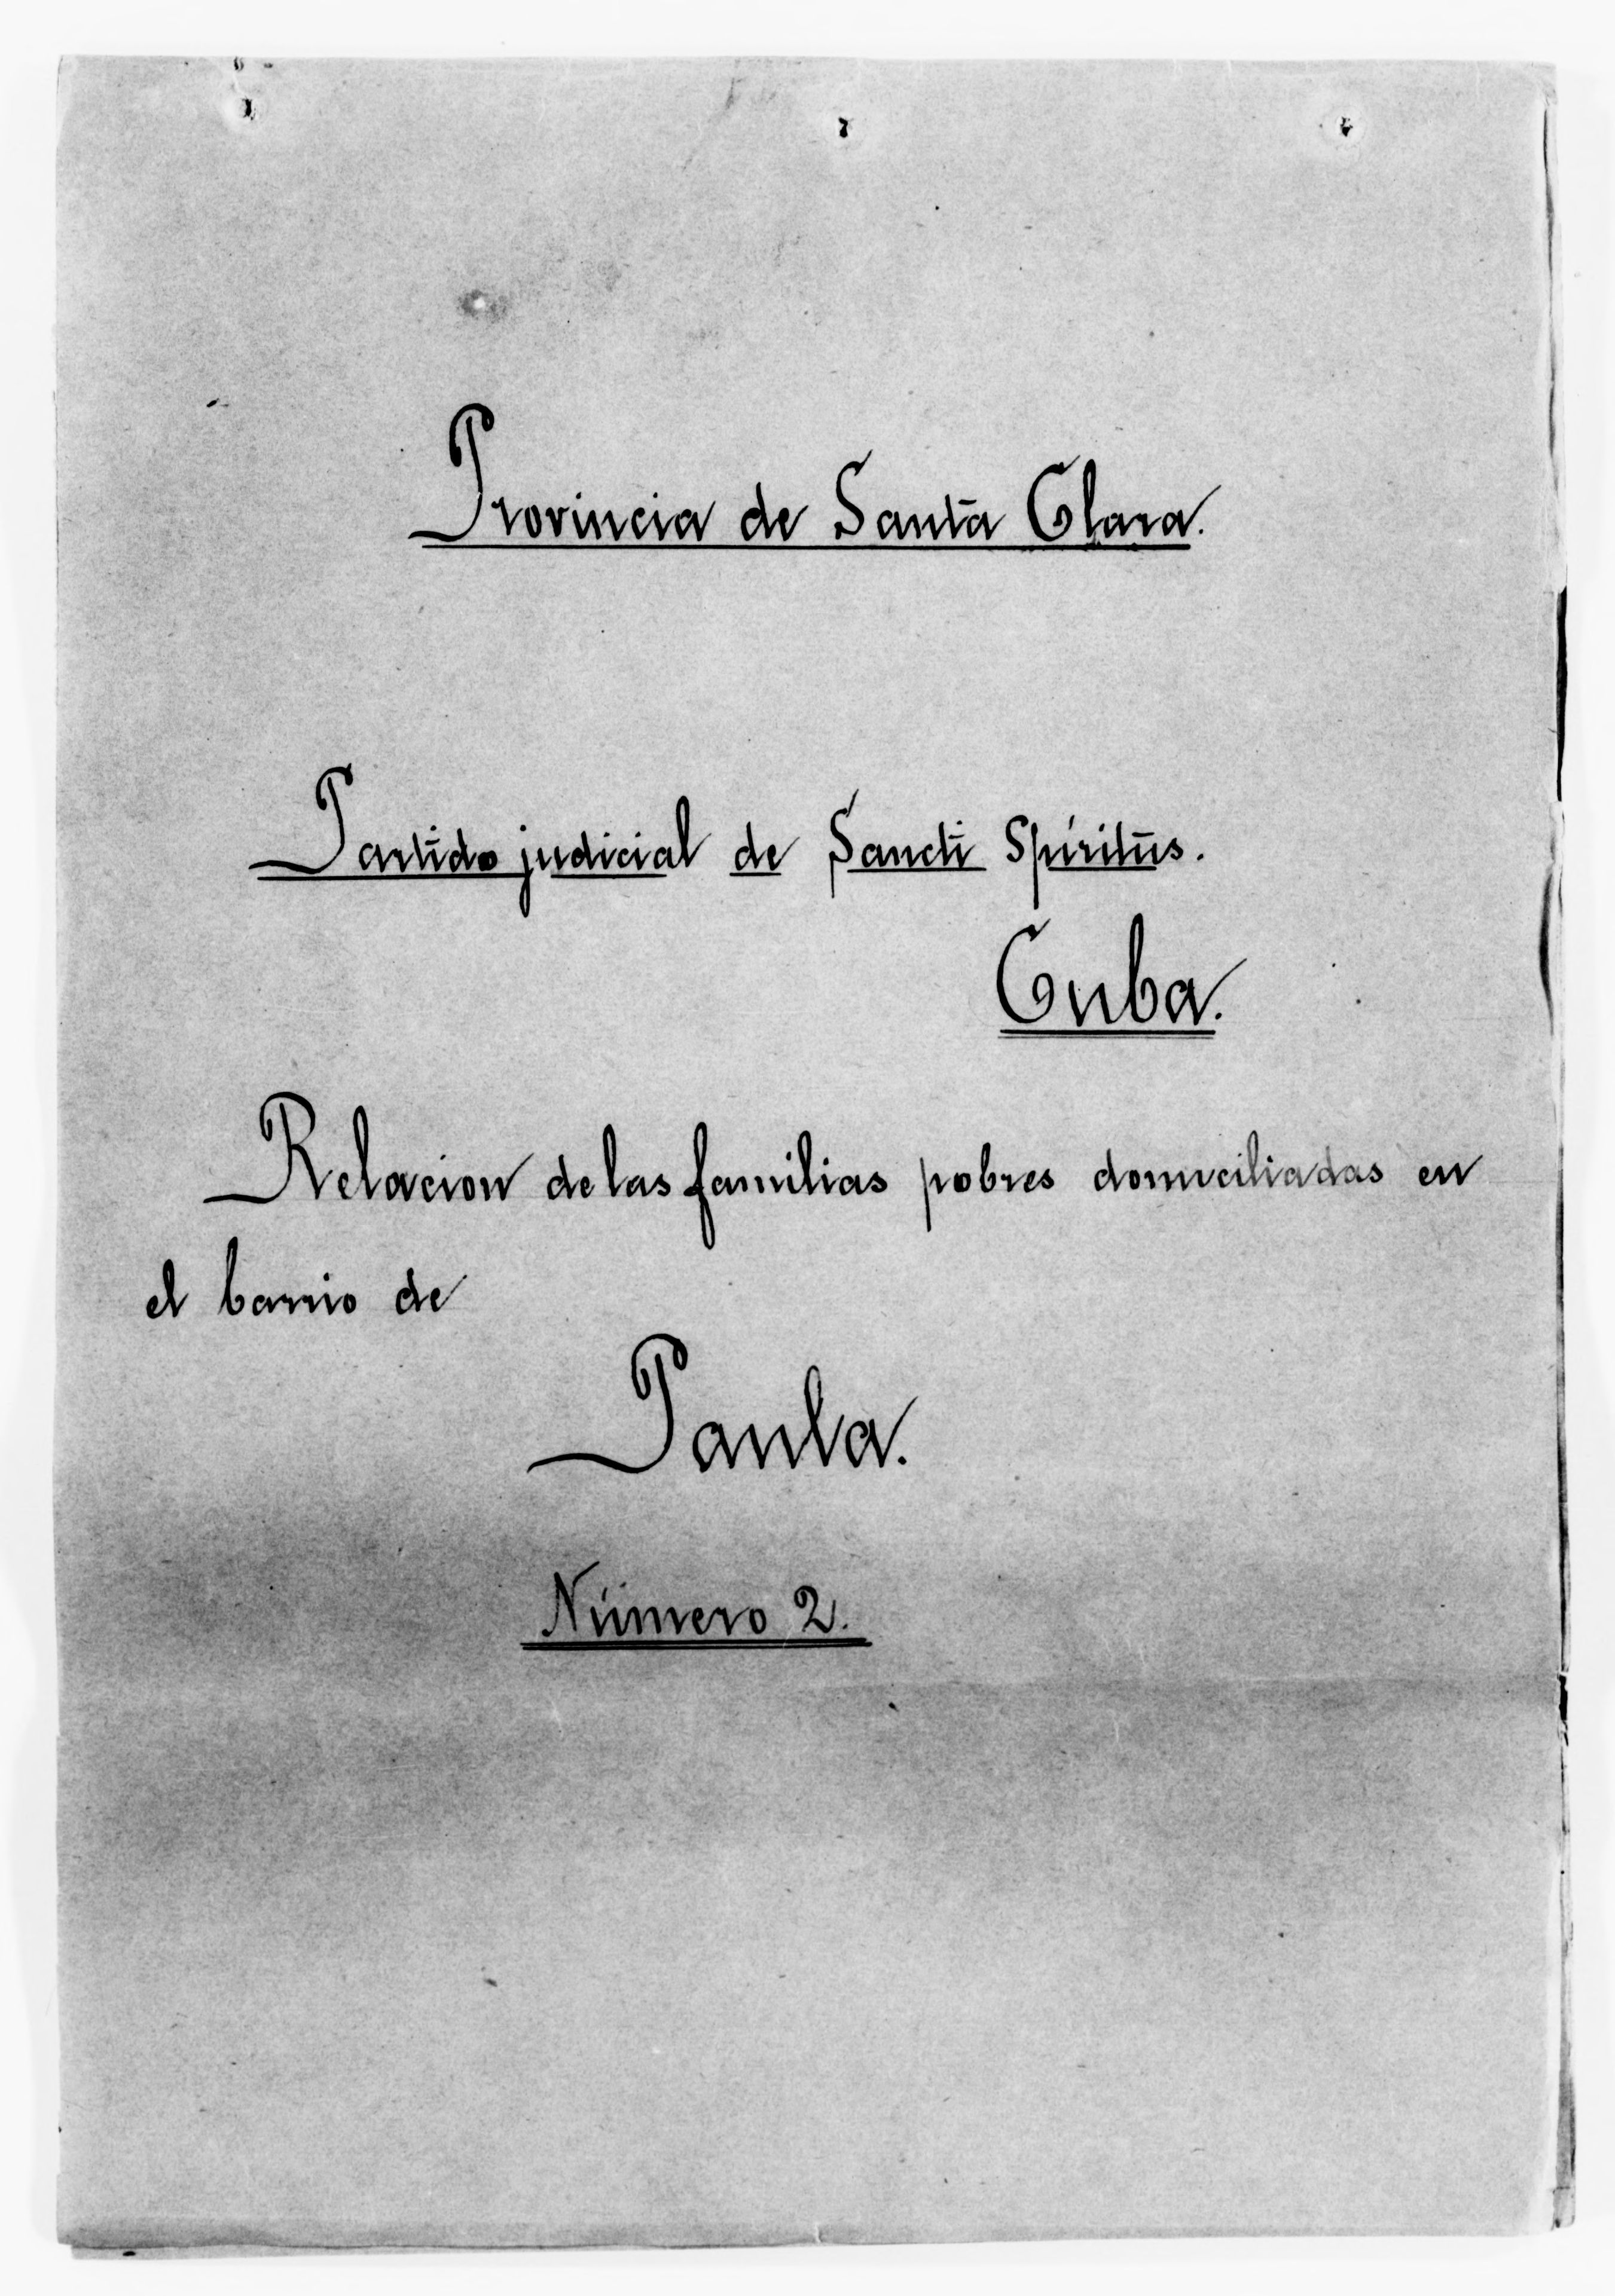 Provincia de Santa Clara.
Partido judicial de Sancti Spíritus.
Cuba.
Relacion de las familias pobres domiciliadas en
el barrio de
Paula.
Número 2.